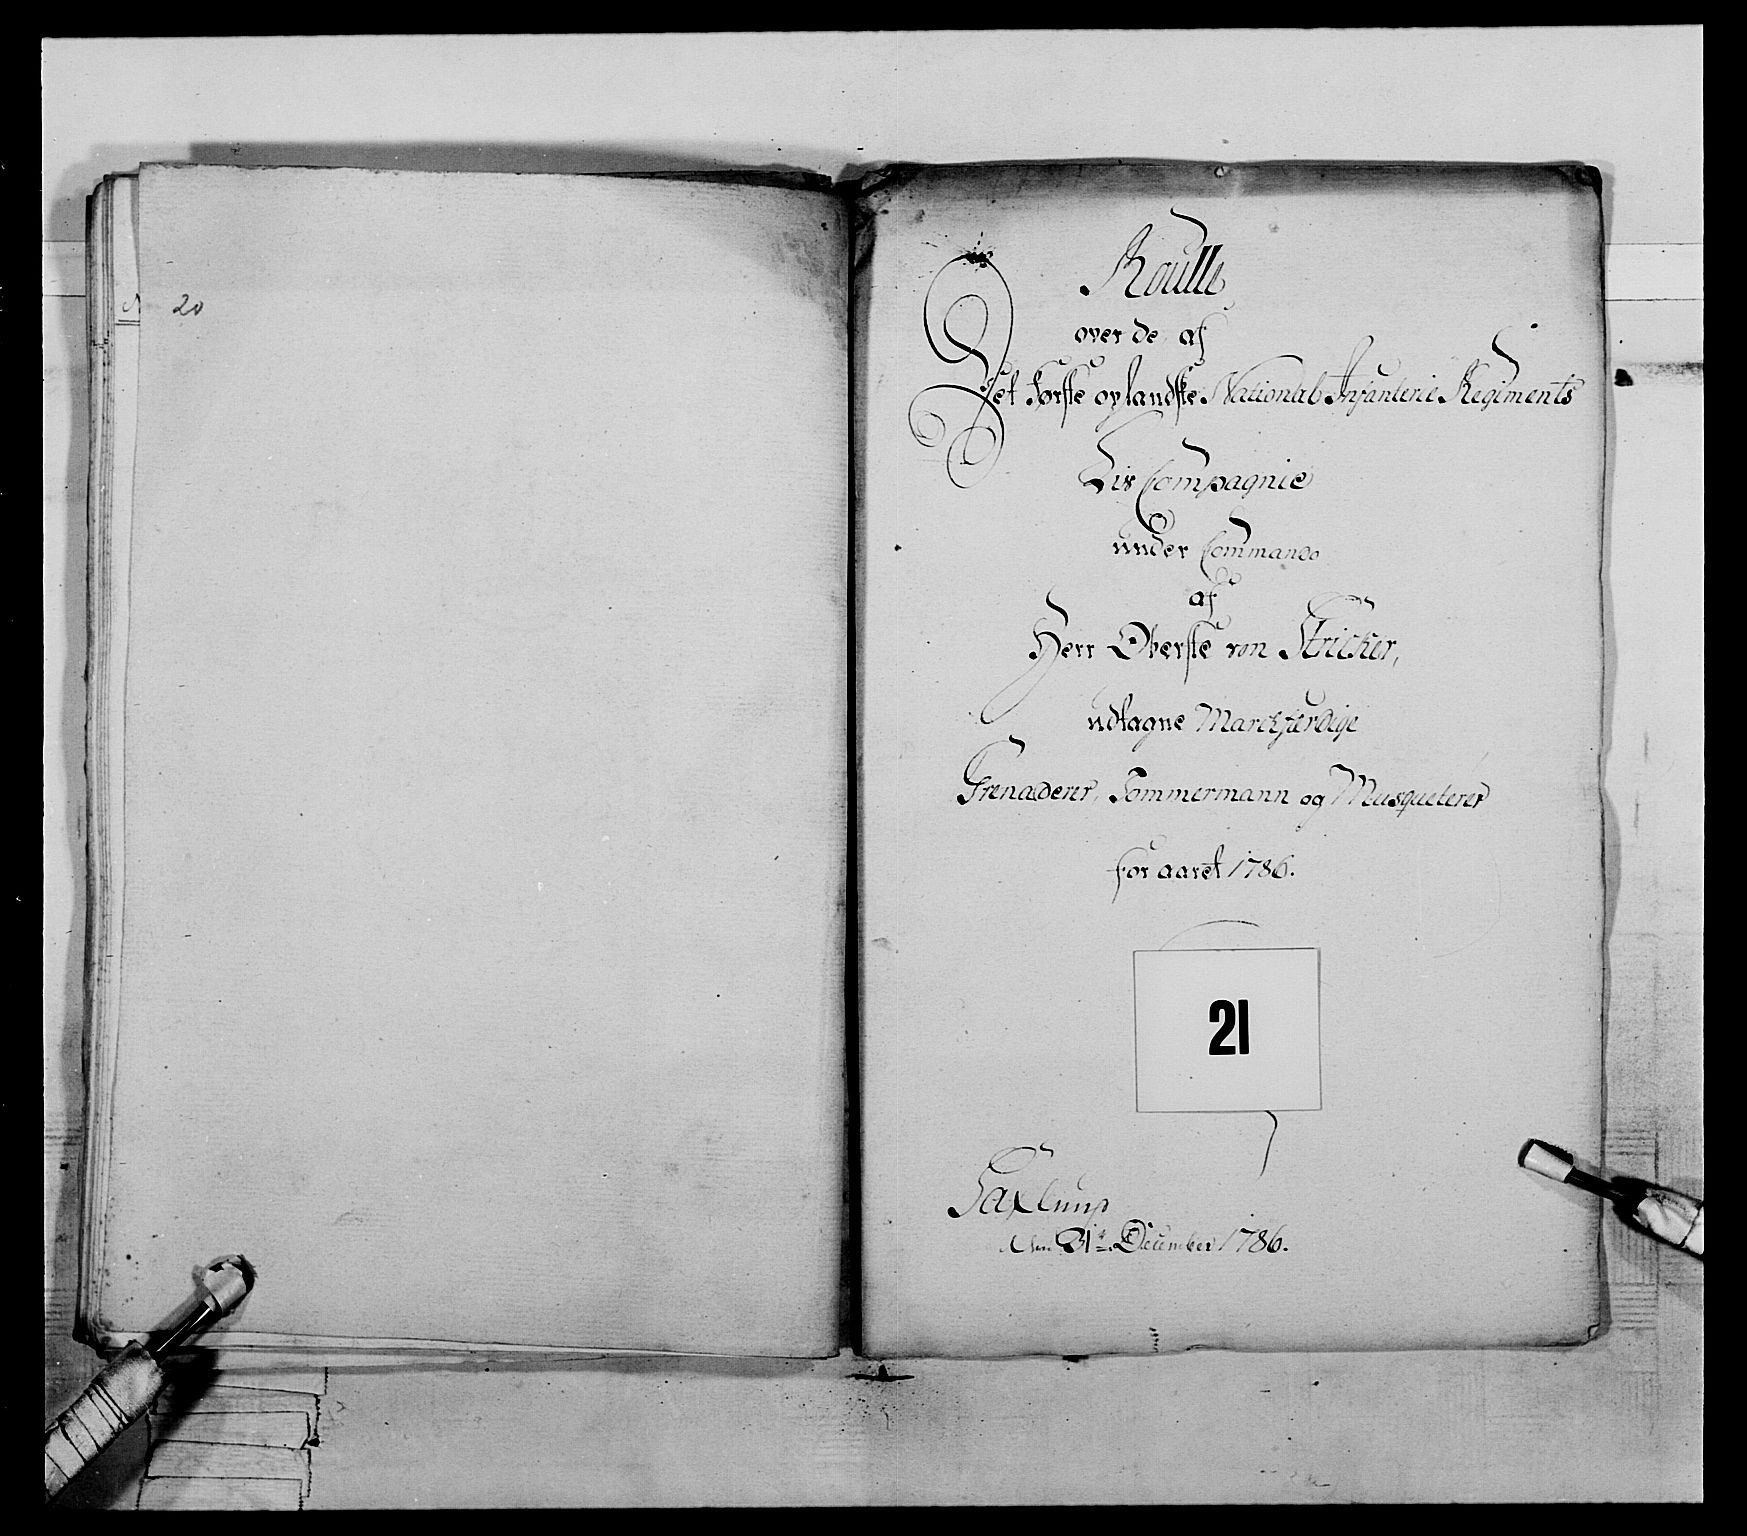 20
Roulle
over de af
Det første oplandske National Infanterie Regiments
Liv Compagnie
under Commando
af
Herr Oberste von Stricker,
udtagne Marchfærdige
Grenaderer, Tømmermann og Musqueterer
for aaret 1786.
21
den 31te December 1786.